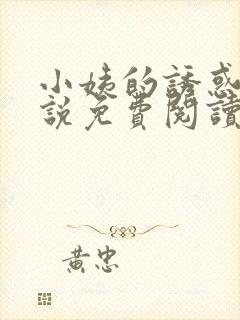 小姨的誘惑
說免費閱讀
黃忠